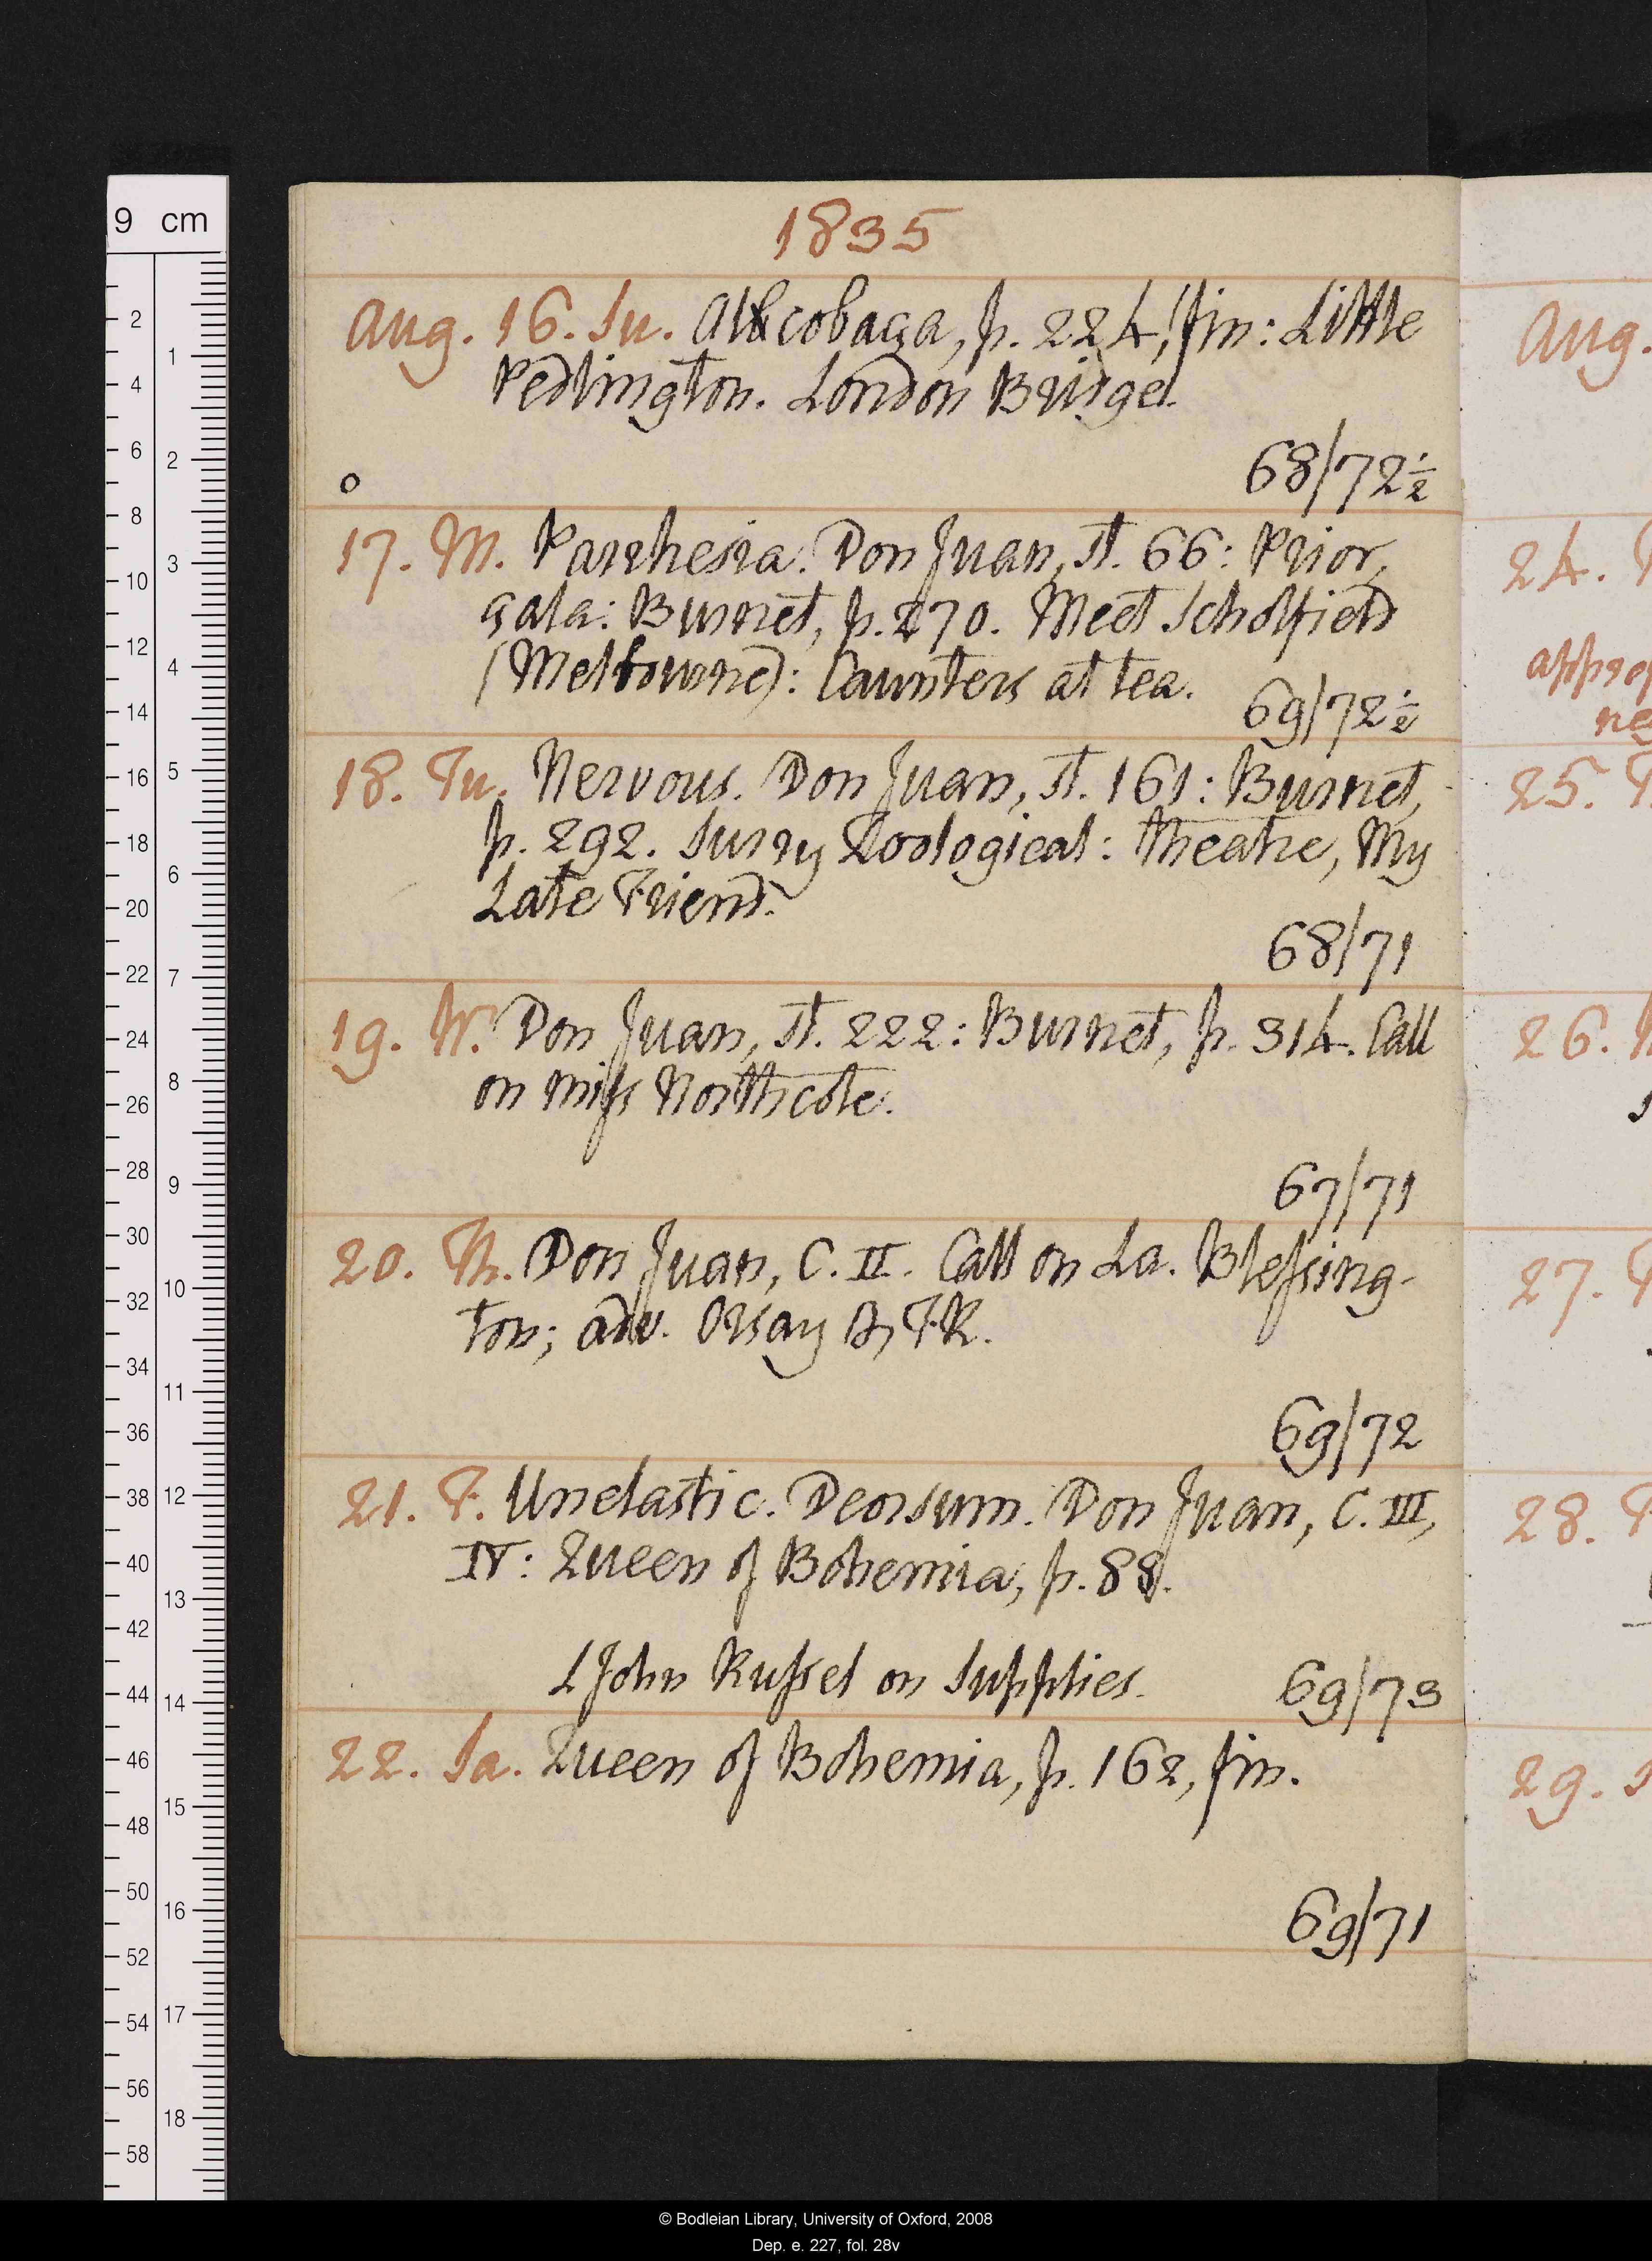 1835
Aug. 16. Su. Alcobaça, p. 224, fin: Little
Pedlington. London Bridge.
o
68/72½
17. M. Parrhesia. Don Juan, st. 66: Prior,
gala: Burnet, p. 270. Meet Scholfield
(Melbourne): Caunters at tea.
69/72½
18. Tu. Nervous. Don Juan, st. 161: Burnet,
p. 292. Surry Zoological: theatre, My
Late Friend.
68/71
19. W. Don Juan, st. 222: Burnet, p. 314. Call
on miss Northcote.
67/71
20. Th. Don Juan, C. II. Call on La. Blessing-
ton; adv. Orsay & F.R.
69/72
21. F. Unelastic. Deorsum. Don Juan, C. III,
IV: Queen of Bohemia, p. 88.
L John Russel on Supplies.
69/73
22. Sa. Queen of Bohemia, p. 162, fin.
69/71
Aug.
24.
25.
26.
27.
28.
29.
9 cm
2
4
6
8
10
12
14
16
18
20
22
24
26
28
30
32
34
36
38
40
42
44
46
48
50
52
54
56
58
1
2
3
4
5
6
7
8
9
10
11
12
13
14
15
16
17
18
© Bodleian Library, University of Oxford, 2008
Dep. e. 227, fol. 28v